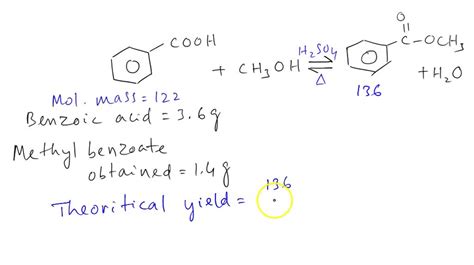 COOH
+ CH3OH
H2SO4
⇌
Δ
O
C
OCH3
+ H2O
Mol. mass = 122
136
Benzoic acid = 3.6g
Methyl benzoate
obtained = 1.4g
Theoritical yield = 136